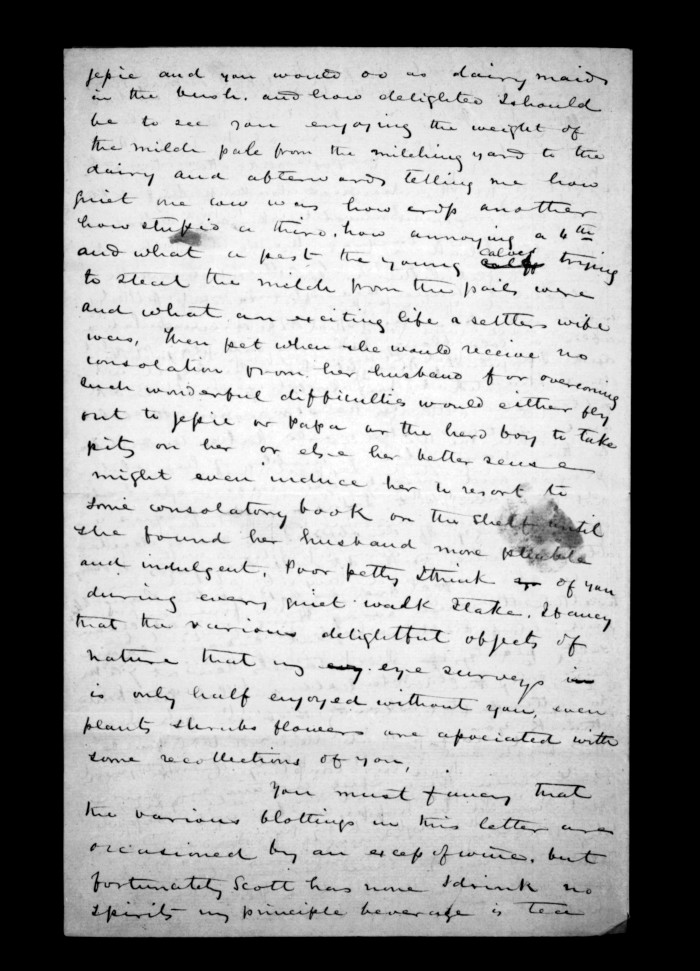 Jessie and you would do as dairy maids
in the bush. and how delighted I should
be to see you enjoying the weight of
the milch pale from the milching yard to the
dairy and afterwards telling me how
quiet one cow was how cross another
how stupid a third, how annoying a 4th
and what a pest the young calves trying
to steal the milch from the pails were
and what an exciting life a settlers wife
was, then pet when she would receive no
consolation from her husband for overcoming
such wonderful difficulties would either fly
out to Jessie or Papa or the herd boy to take
pity on her or else her better sense
might even induce her to resort to
some consolatory book on the shelf until
she found her husband more pleiable
and indulgent. Poor petty I think of you
during every quiet walk I take. I fancy
that the various delightful objects of
nature that my eye surveys
is only half enjoyed without you, even
plants shrubs flowers are apociated with
some recollections of you,
You must fancy that
the various blottings in this letter are
occasioned by an excess of wine, but
fortunately Scott has none I drink no
spirits my principle beverage is tea